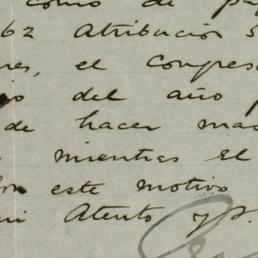 como de
62 Atribucion 5
el Congres
del año p
de hacer
mientras el
este motivo
Atento y S.